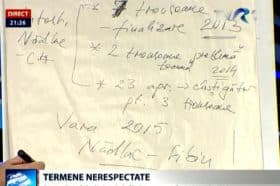 DIRECT
21:26
* 7 tronsoane
finalizare 2015
Nădlac
* 2 tronsoane problemă
2014
* 23 apr. → câștigător
pt. 3 tronsoane
Vara 2015
Nădlac - Sibiu
TERMENE NERESPECTATE